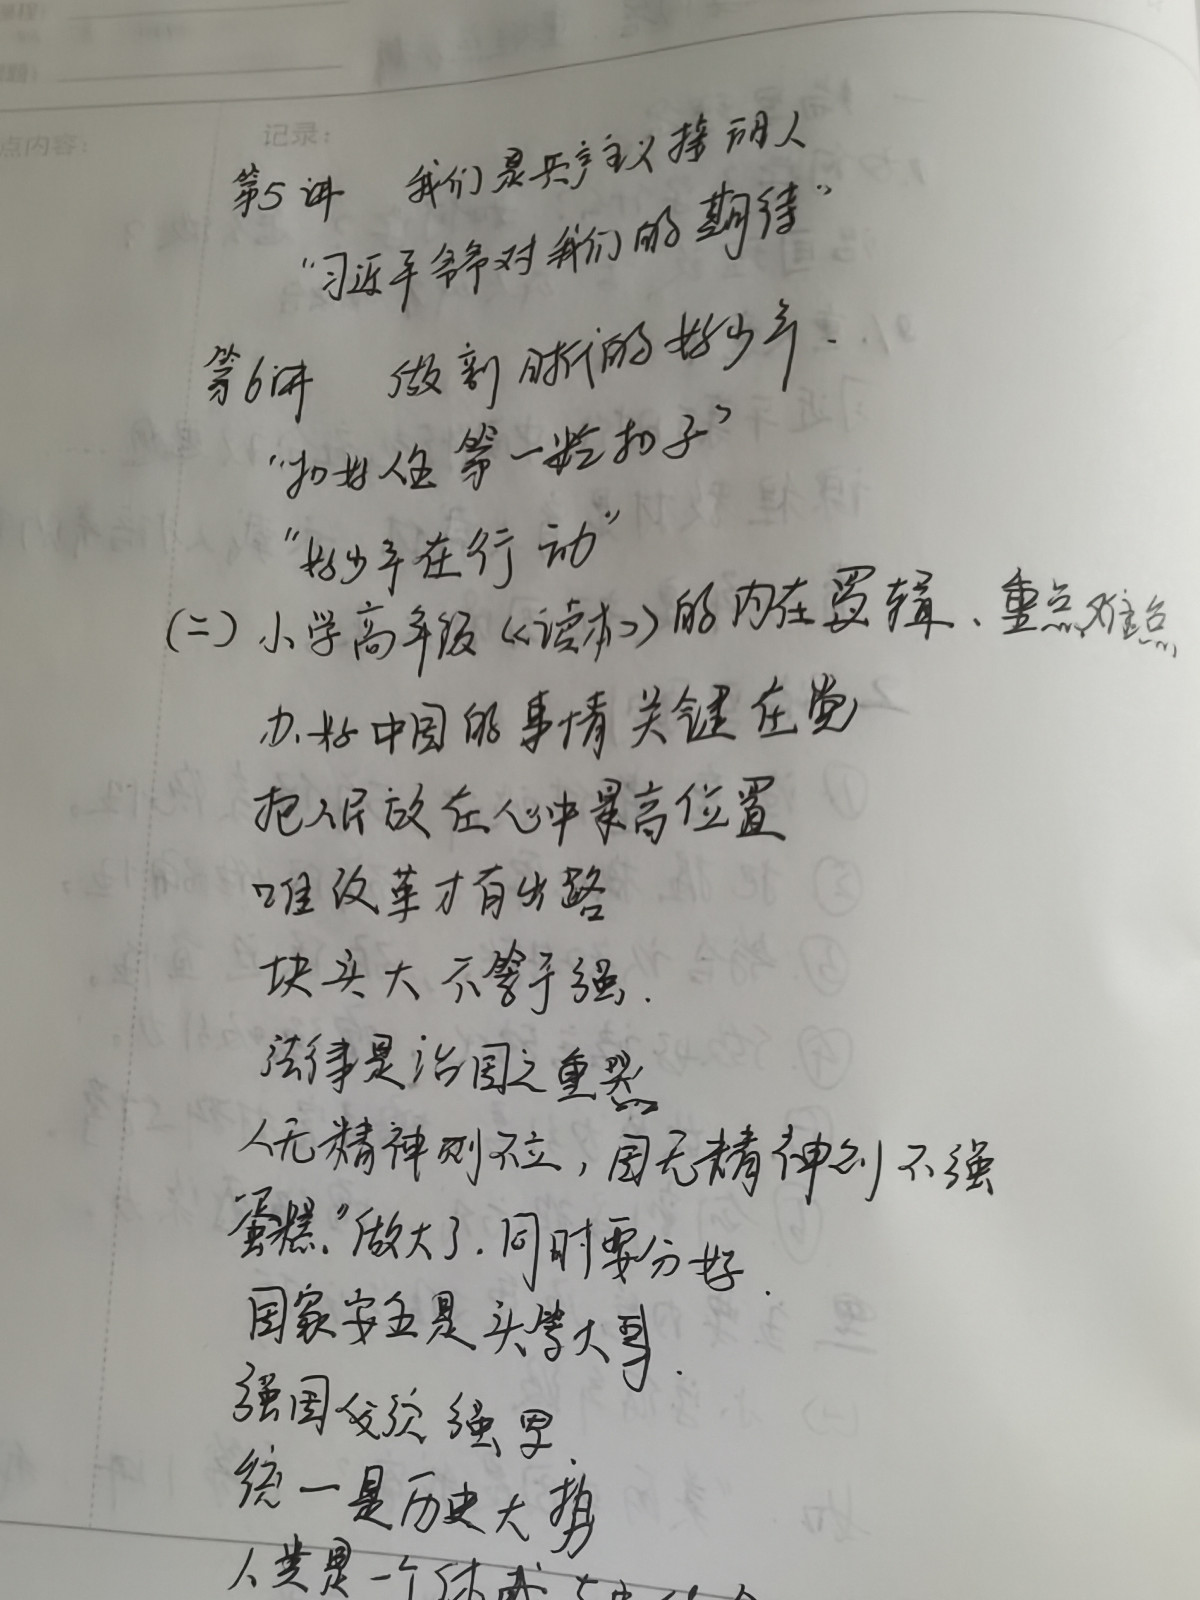 记录：
点内容：
第5讲 我们是共产主义接班人
“习近平爷爷对我们的期待”
第6讲 做新时代的好少年.
“扣好人生第一粒扣子”
“好少年在行动”
(二) 小学高年级《读本》的内在逻辑、重点难点
办好中国的事情关键在党
把人民放在心中最高位置
唯改革才有出路
块头大不等于强.
法律是治国之重器
人无精神则不立，国无精神则不强
蛋糕”做大了.同时要分好.
国家安全是头等大事.
强国必须强军.
统一是历史大势
人类是一个休戚